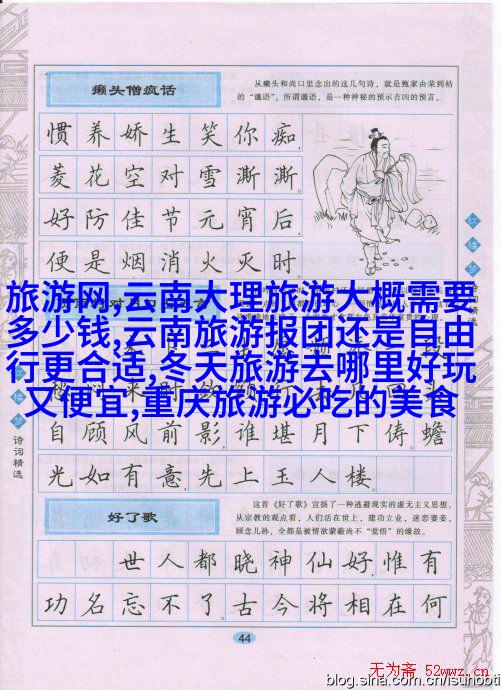 癞头僧疯话
从癞头和尚口里念出的这几句诗，就是甄家由荣到枯
的“谶语”。所谓谶语，是一种神秘的预示吉凶的预言。
惯养娇生笑你痴，
菱花空对雪澌澌。
好防佳节元宵后，
便是烟消火灭时。
旅游网,云南大理旅游大概需要
多少钱,云南旅游报团还是自由
行更合适,冬天旅游去哪里好玩
又便宜,重庆旅游必吃的美食
自顾风前影，谁堪月下俦。蟾
光如有意，先上玉人楼。
好了歌
这首《好了歌》宣扬了一种逃避现实的虚无主义思想。
从宗教的观点看，人们活在世上，建功立业，迷恋妻妾，
顾念儿孙，全都是被情欲蒙蔽尚不“觉悟”的缘故。
世人都晓神仙好，惟有
功名忘不了。古今将相在何
44
红楼梦
诗词精选
无为斋 52wwz.cn
blog.sina.com.cn/isunobti